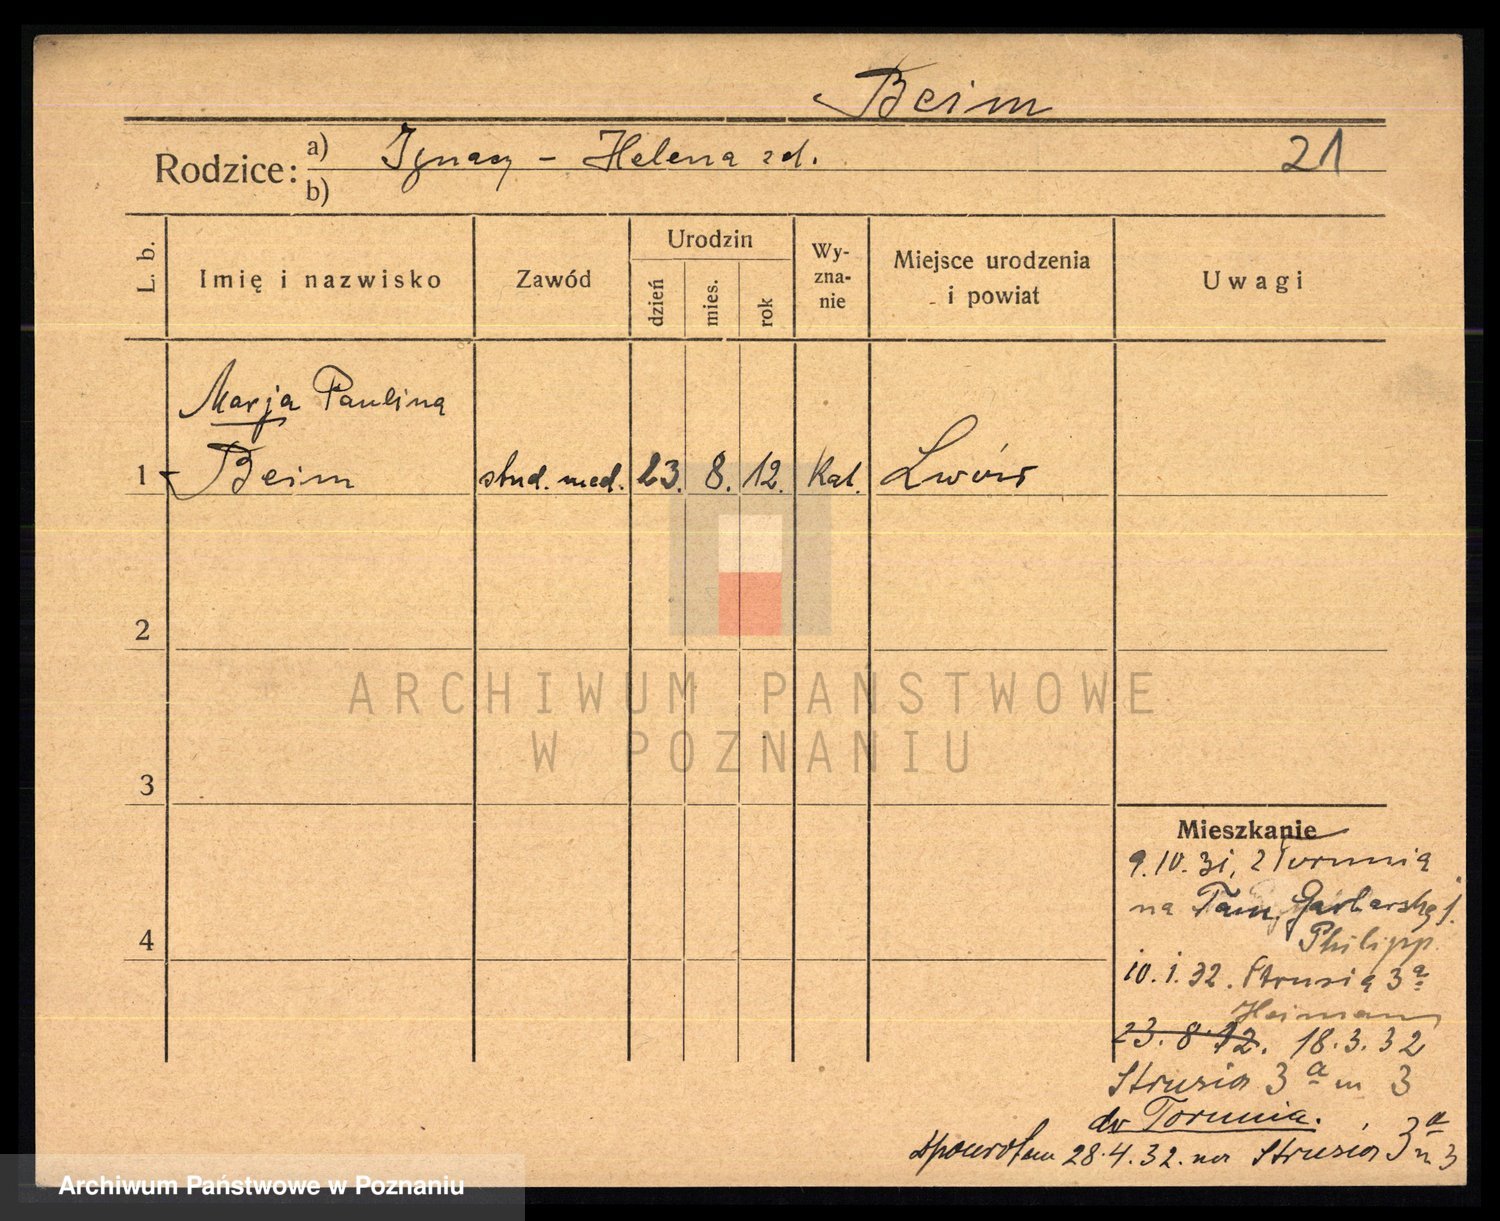 Beim
Rodzice:
a) Ignacy - Helena zd.
b)
21
L. b.
Imię i nazwisko
Zawód
Urodzin
dzień
mies.
rok
Wy-
zna-
nie
Miejsce urodzenia
i powiat
Uwagi
Marja Paulina
1 Beim stud. med. 23. 8. 12. Kat. Lwów
2
3
4
ARCHIWUM PAŃSTWOWE
W POZNANIU
Mieszkanie
9.10.31, z Torunia
na Garbarską 1.
Philipp.
10.1.32. Strusia 3a
Heimann
23.8.12. 18.3.32
Strusia 3a m 3
do Torunia.
spowrotem 28.4.32. na Strusia 3a m 3
Archiwum Państwowe w Poznaniu